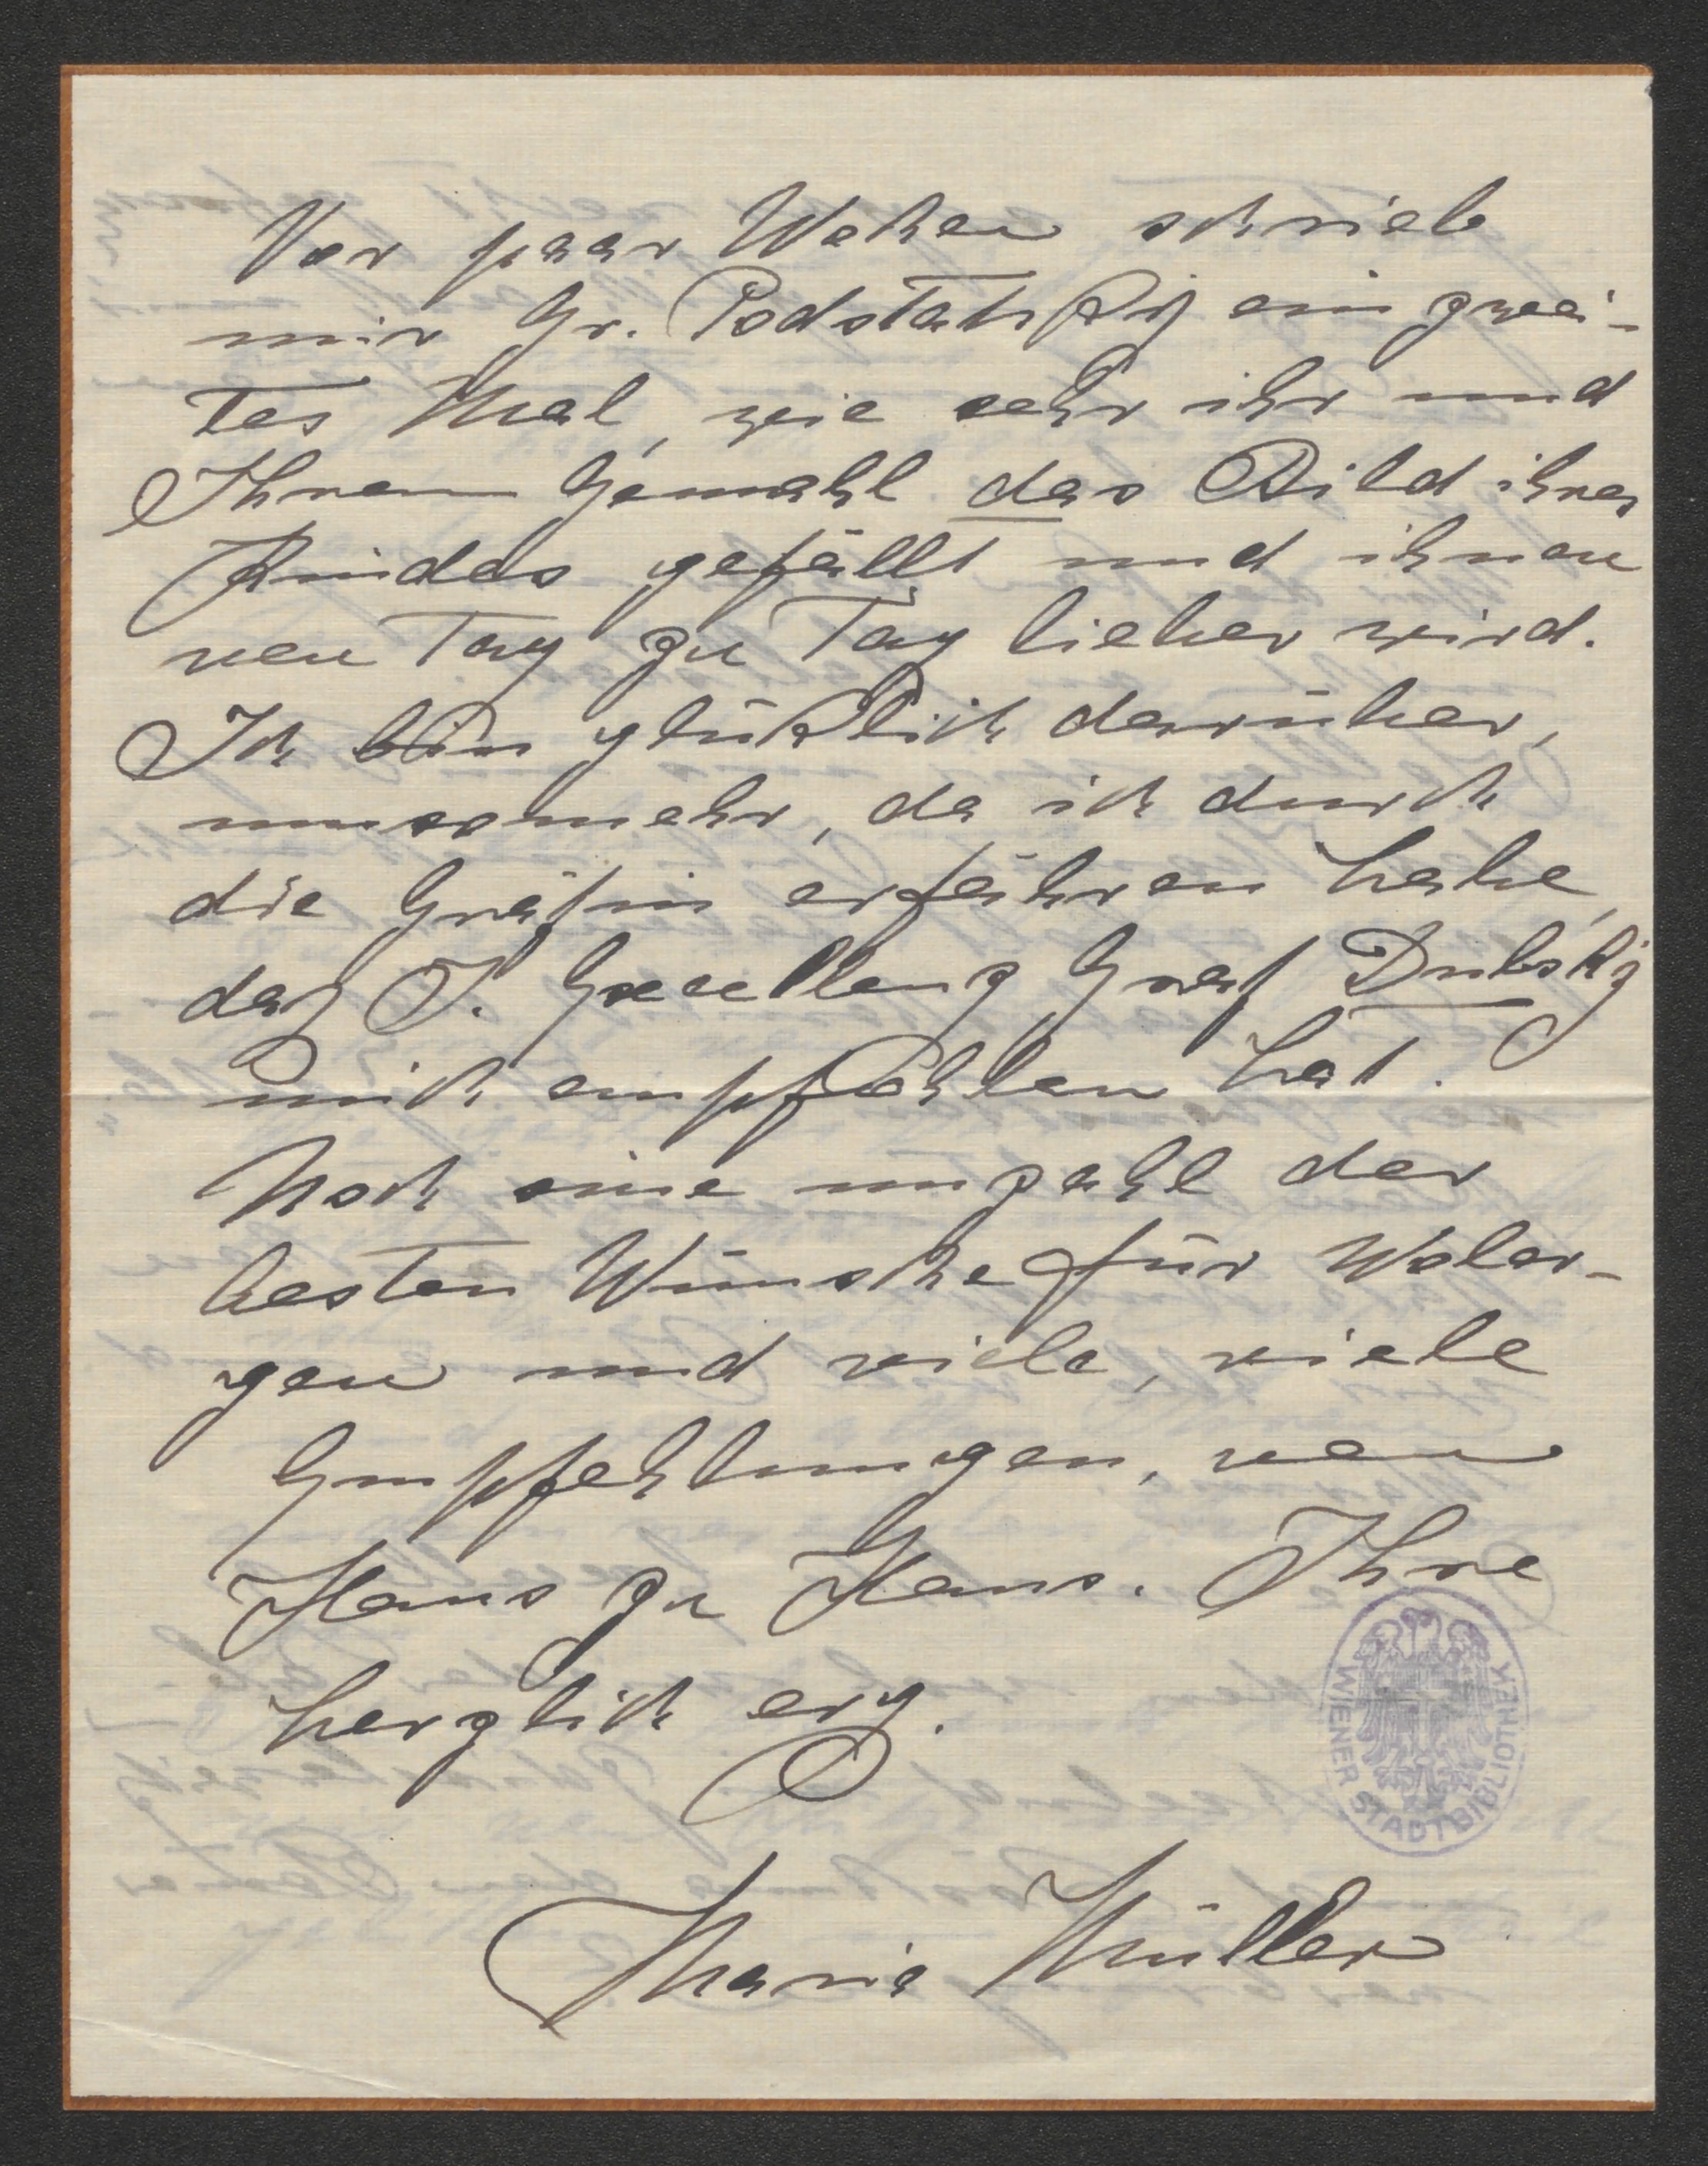 Vor paar Wochen schrieb
mir Gr. Podstatzky ein zwei-
tes Mal, wie sehr ihr und
Ihrem Gemahl das Bild ihres
Kindes gefällt und ihnen
von Tag zu Tag lieber wird.
Ich bin glücklich darüber,
umsomehr, da ich durch
die Gräfin erfahren habe,
daß S. Excellenz Graf Dubsky
mich empfohlen hat.
Noch eine unzahl der
besten Wünsche für Wolor-
gen und viele, viele
Empfehlungen, von
Haus zu Haus. Ihre
herzlich erg.
Marie Müller
WIENER STADTBIBLIOTHEK